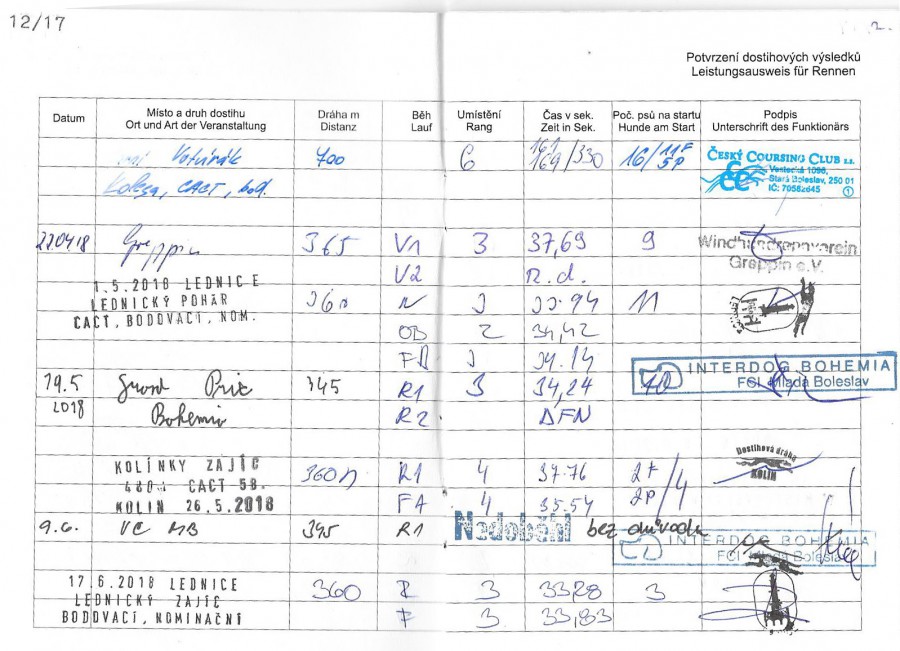 12/17
2.
Potvrzení dostihových výsledků
Leistungsausweis für Rennen
Datum Místo a druh dostihu Dráha m Běh Umístění Čas v sek. Poč. psů na startu Podpis
Ort und Art der Veranstaltung Distanz Lauf Rang Zeit in Sek. Hunde am Start Unterschrift des Funktionärs
700 6 161 169/330 16/11F 5P ČESKÝ COURSING CLUB z.s.
CACT, bod. Vestecká 1096,
Stará Boleslav, 250 01
IČ: 70562645
22.04.18 Greppin 365 V1 3 37,69 9 Windhundrennverein
V2 n.d. Greppin e.V.
1.5.2018 LEDNICE
LEDNICKÝ POHÁR 360 N 11
CACT, BODOVACÍ, NOM. OD 2 34,42
34.14
19.5 Grand Prix 345 R1 3 34,24 10 INTERDOG BOHEMIA
2018 Bohemia R2 DFN FCI Mladá Boleslav
KOLÍNKY ZAJÍC 360 R1 4 37.76 2F/4 Dostihová dráha
CACT KOLÍN
KOLIN 26.5.2018 FA 4 35.54 2P
9.6. VC MB 345 R1 Nedoběhl bez důvodu INTERDOG BOHEMIA
FCI Mladá Boleslav
17.6.2018 LEDNICE 360 3 33,28 3
LEDNICKÝ ZAJÍC
BODOVACÍ, NOMINAČNÍ F 3 33,83